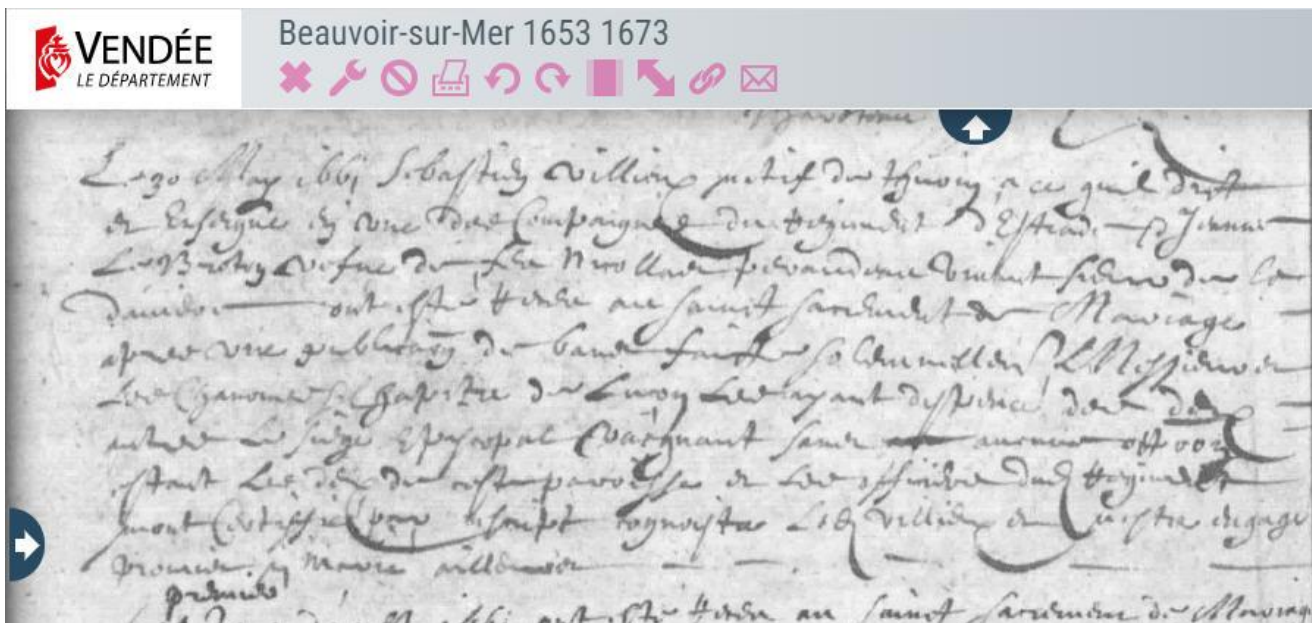 VENDÉE
LE DÉPARTEMENT
Beauvoir-sur-Mer 1653 1673
Le 30 May 1661 Sebastien Villieux natif de a ce quil dict
et Enseigne en une des Compaignies du Regiment d'Estrade et Jeanne
Le Breton vefve de feu Nicollas vivant sieur de la
ont esté Receu au sainct sacrement de Mariage
apres une publication de bans faicte solemnellem Messieurs
les Chanoines et Chapitre de Luçon les ayant dispencé des deux
autres le siege Episcopal vacquant sans aucune
estant de ceste paroisse et les officiers dud Regiment
mont certiffié par escript cognoistre led Villieux et nestre engagé
promis ny marié ailleurs
premier
esté Receu au sainct sacrement de Mariage